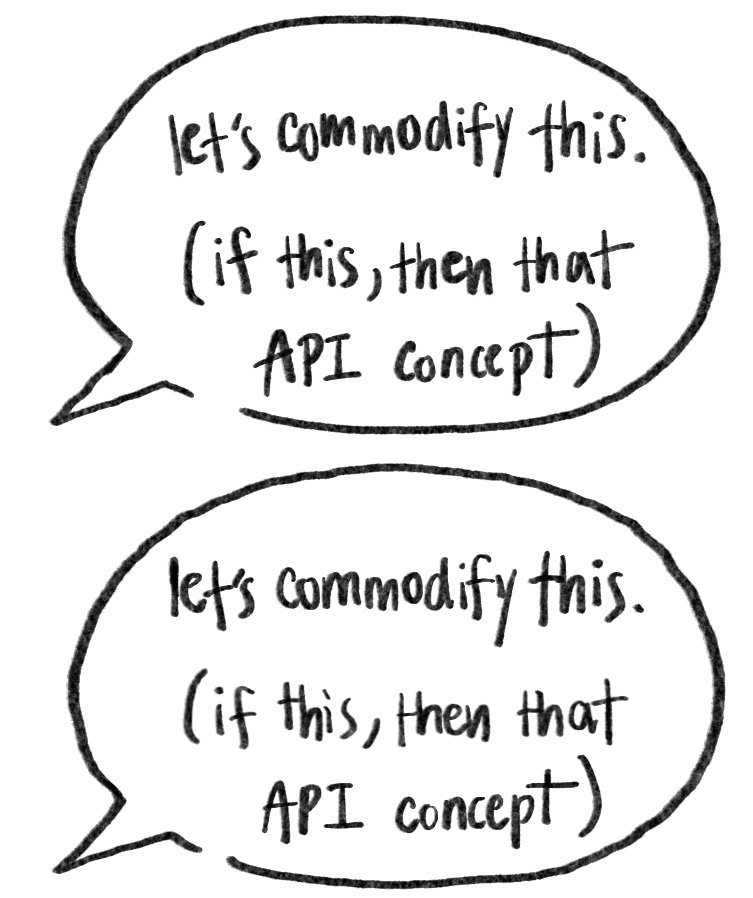 let's commodify this.
(if this, then that
API concept)
let's commodify this.
(if this, then that
API concept)